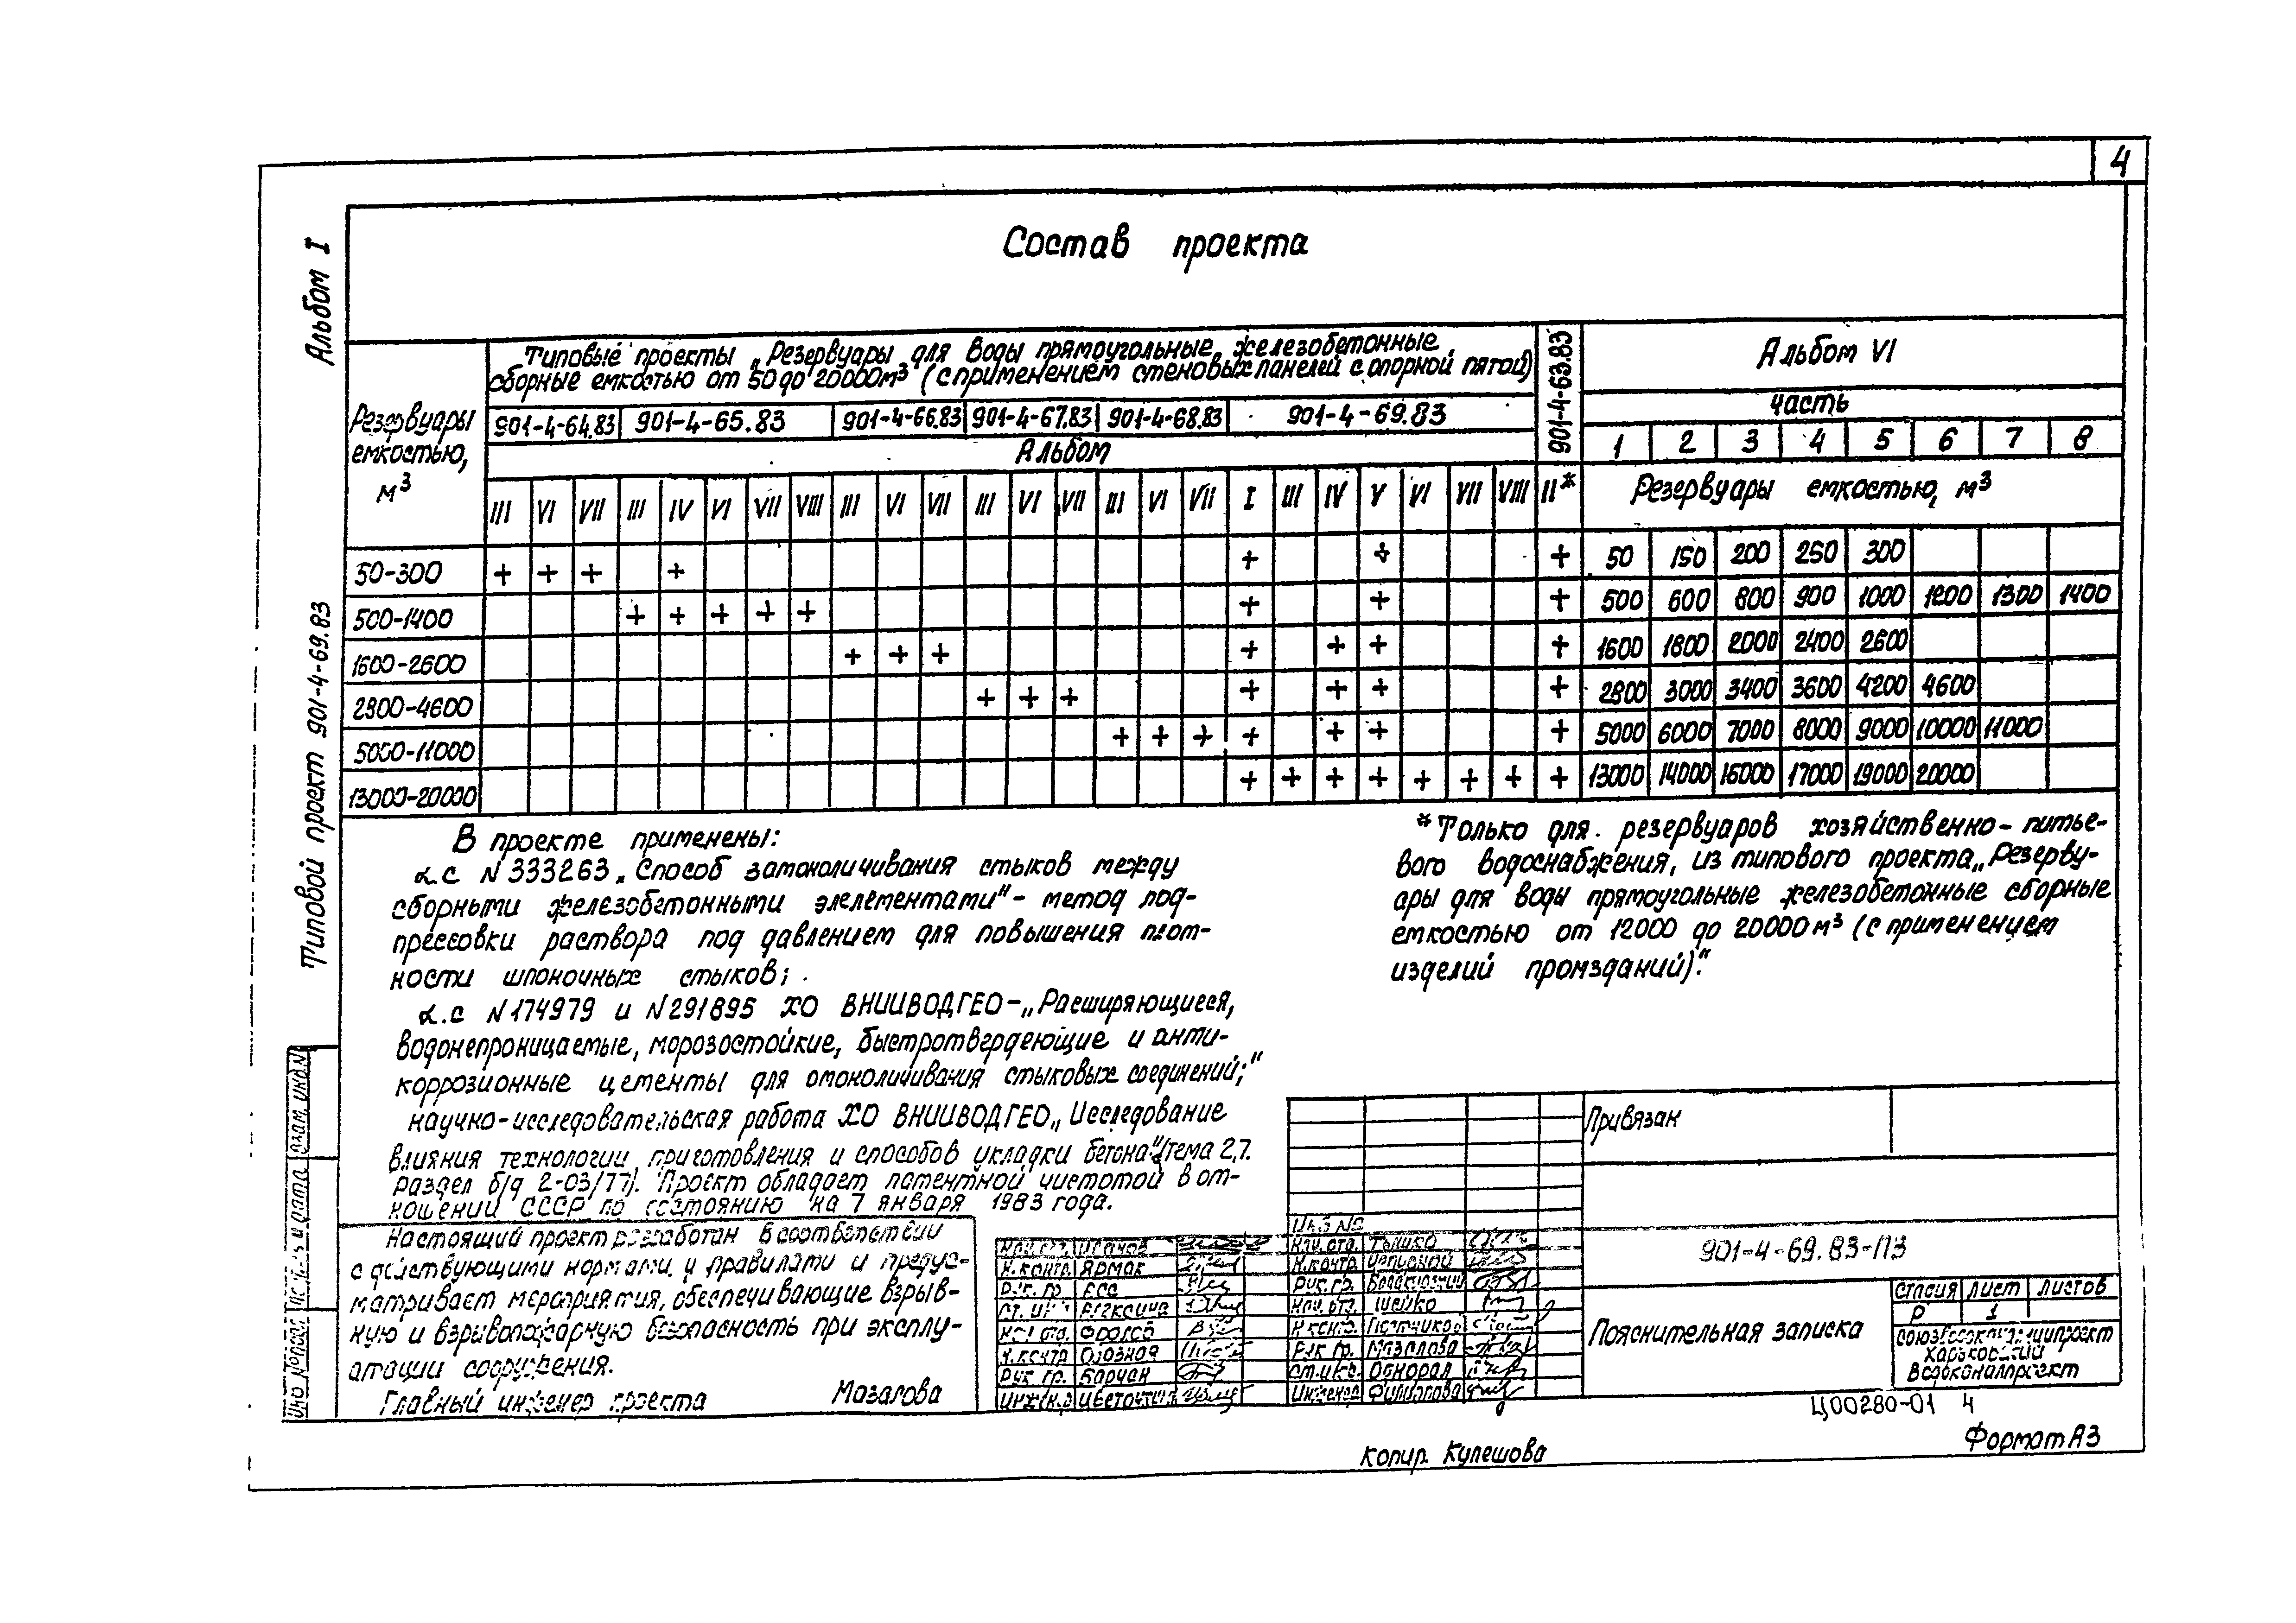 4
Альбом I
Типовой проект 901-4-69.83
Состав проекта
Резервуары емкостью, м³
Типовые проекты „Резервуары для воды прямоугольные железобетонные
сборные емкостью от 50 до 20000м³ (с применением стеновых панелей с опорной пятой)
901-4-64.83 901-4-65.83 901-4-66.83 901-4-67.83 901-4-68.83 901-4-69.83
901-4-63.83
Альбом
III VI VII III IV VI VII VIII III VI VII III VI VII III VI VII I III IV V VI VII VIII II*
Альбом VI
часть
1 2 3 4 5 6 7 8
Резервуары емкостью, м³
50-300 + + + + + + + 50 150 200 250 300
500-1400 + + + + + + + + 500 600 800 900 1000 1200 1300 1400
1600-2600 + + + + + + + 1600 1800 2000 2400 2600
2800-4600 + + + + + + + 2800 3000 3400 3600 4200 4600
5000-11000 + + + + + + + 5000 6000 7000 8000 9000 10000 11000
13000-20000 + + + + + + + + 13000 14000 16000 17000 19000 20000
В проекте применены:
а.с N333263 „Способ замоноличивания стыков между
сборными железобетонными элелементами“ - метод под-
прессовки раствора под давлением для повышения плот-
ности шпоночных стыков;
а.с N174979 и N291895 ХО ВНИИВОДГЕО-„Расширяющиеся,
водонепроницаемые, морозостойкие, быстротвердеющие и анти-
коррозионные цементы для омоноличивания стыковых соединений;“
научно-исследовательская работа ХО ВНИИВОДГЕО „Исследование
влияния технологии приготовления и способов укладки бетона“/тема 2,7.
раздел б/д 2-03/77). Проект обладает патентной чистотой в от-
ношении СССР по состоянию на 7 января 1983 года.
*Только для резервуаров хозяйственно-питье-
вого водоснабжения, из типового проекта „Резерву-
ары для воды прямоугольные железобетонные сборные
емкостью от 12000 до 20000м³ (с применением
изделий промзданий).“
Настоящий проект разработан в соответствии
с действующими нормами и правилами и предус-
матривает мероприятия, обеспечивающие взрыв-
ную и взрывопожарную безопасность при эксплу-
атации сооружения.
Главный инженер проекта Мазалова
Нач.отд. Иванов
Н.контр. Ярмак
Рук. гр.
Ст. инж.
Нач. отд. Фролов
Н.контр.
Рук. гр. Барчан
Инжен.
Инв №
Нач. отд.
Н.контр.
Рук. гр.
Нач. отд. Шейко
Н.контр.
Рук. гр. Мазалова
Ст. инж. Однорал
Инженер Филиппова
Привязан
901-4-69.83-ПЗ
Пояснительная записка
стадия лист листов
Р 1
Союзводоканалниипроект
Харьковский
Водоканалпроект
Взам. инв. N
Подп. и дата
Инв № подл
Ц00280-01 4
Копир. Кулешова
Формат А3